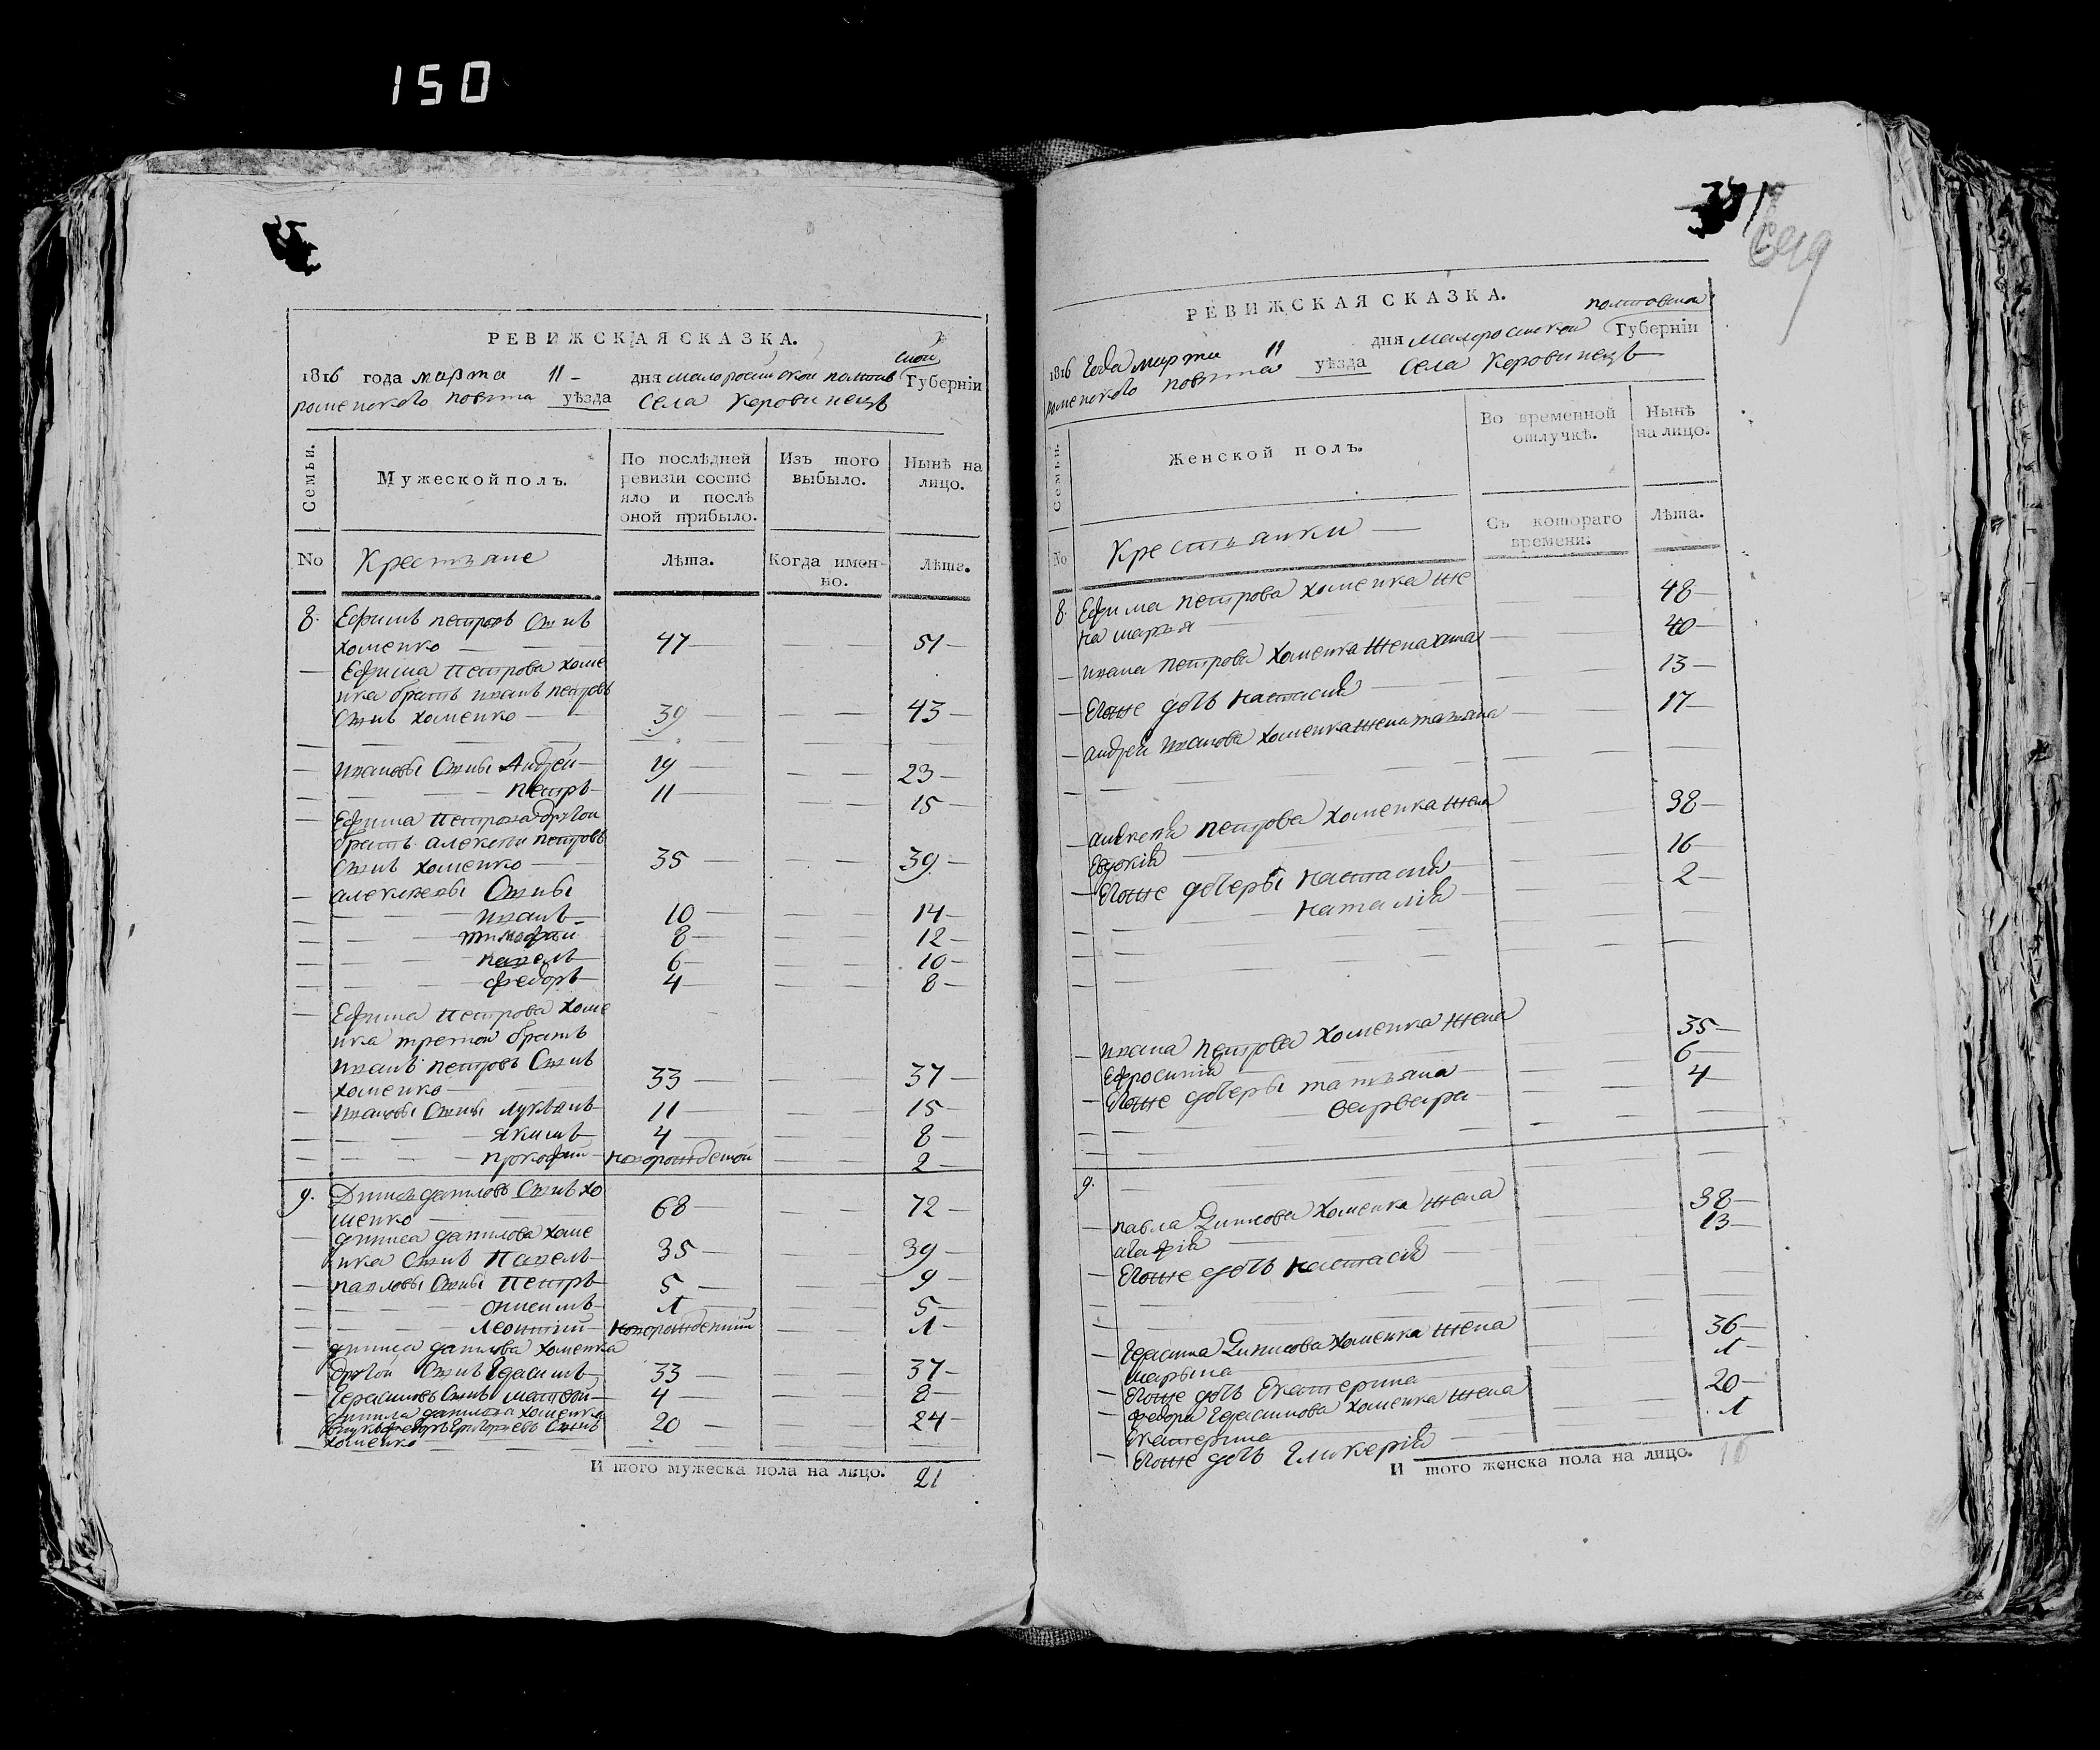 150
РЕВИЖСКАЯ СКАЗКА.
1816 года марта 11 дня малоросийской полтав
ской Губернiи
роменского повѣта уѣзда Села Керовинецъ
Семьи.
Мужеской полъ.
По послѣдней
ревизiи состо
яло и послѣ
оной прибыло.
Изъ того
выбыло.
Нынѣ на
лицо.
No Крестьяне
Лѣта.
Когда имен-
но.
Лѣта.
8. Ефимъ петровъ Сынъ
хоменко 47 51
Ефима петрова хоме
нка братъ иванъ петровъ
Сынъ хоменко 39 43
ивановы Сыны Андрей 19 23
петръ 11 15
Ефима петрова другой
братъ алексей петровъ
Сынъ хоменко 35 39
алексѣевы Сыны
иванъ 10 14
тимофей 8 12
павелъ 6 10
федоръ 4 8
Ефима петрова хоме
нка третой братъ
иванъ петровъ Сынъ
хоменко 33 37
ивановы Сыны лукьянъ 11 15
якимъ 4 8
прокофий новорожденой 2
9. Динисъ даниловъ Сынъ хо
менко 68 72
диниса данилова хоме
нка Сынъ Павелъ 35 39
павловы Сыны петръ 5 9
онисимъ 1 5
Леонтий новорожденний 1
диниса данилова хоменка
другой Сынъ Герасимъ 33 37
Герасимовъ Сынъ матвей 4 8
данилова хоменка
внукъ федоръ Григорьевъ Сынъ 20 24
хоменко
И того мужеска пола на лицо. 21
649
РЕВИЖСКАЯ СКАЗКА.
полтавской
1816 Года марта 11 дня малоросийской Губернiи
роменского повѣта уѣзда Села Керовинецъ
Семьи.
Женской полъ.
Во временной
отлучкѣ.
Нынѣ
на лицо.
No Крестьянки
Съ котораго
времени.
Лѣта.
8. Ефима петрова хоменка же
на марья 48
ивана петрова хоменка жена 40
Егоже дочь настасия 13
андрея иванова хоменка жена татьяна 17
алексея петрова хоменка жена
Евдокия 38
Егоже дочеры настасия 16
наталия 2
ивана петрова хоменка жена
Ефросиния 35
Егоже дочеры татьяна 6
варвара 4
9.
павла Динисова хоменка жена
агафия 38
Егоже дочь настасия 13
Герасима Динисова хоменка жена
марьяна 36
Егоже дочь Екатерина 1
федора Герасимова хоменка жена
Екатерина 20
Егоже дочь Гликерия 1
И того женска пола на лицо. 16